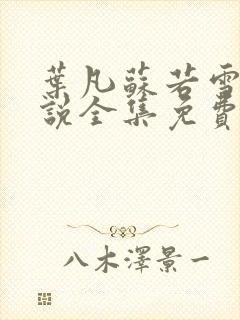 葉凡蘇若雪
說全集免費
八木澤景一